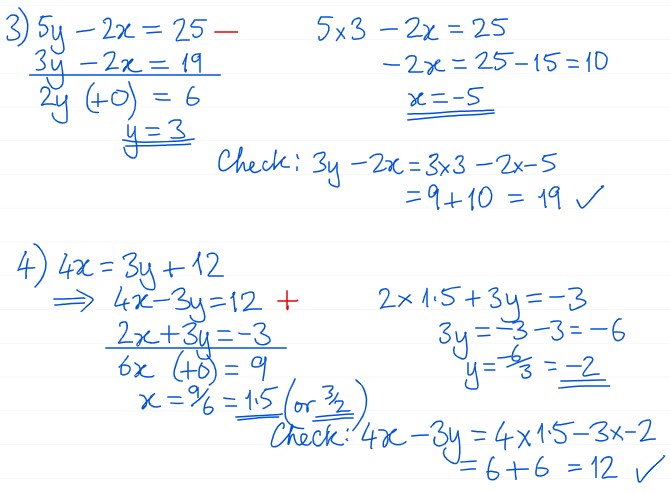 3) 5y − 2x = 25 −
3y − 2x = 19
2y (+0) = 6
y = 3
5×3 − 2x = 25
−2x = 25 − 15 = 10
x = −5
Check: 3y − 2x = 3×3 − 2×−5
= 9 + 10 = 19 ✓
4) 4x = 3y + 12
⇒ 4x − 3y = 12 +
2x + 3y = −3
6x (+0) = 9
x = 9/6 = 1·5 (or 3/2)
2 × 1·5 + 3y = −3
3y = −3 − 3 = −6
y = −6/3 = −2
Check: 4x − 3y = 4×1·5 − 3×−2
= 6 + 6 = 12 ✓